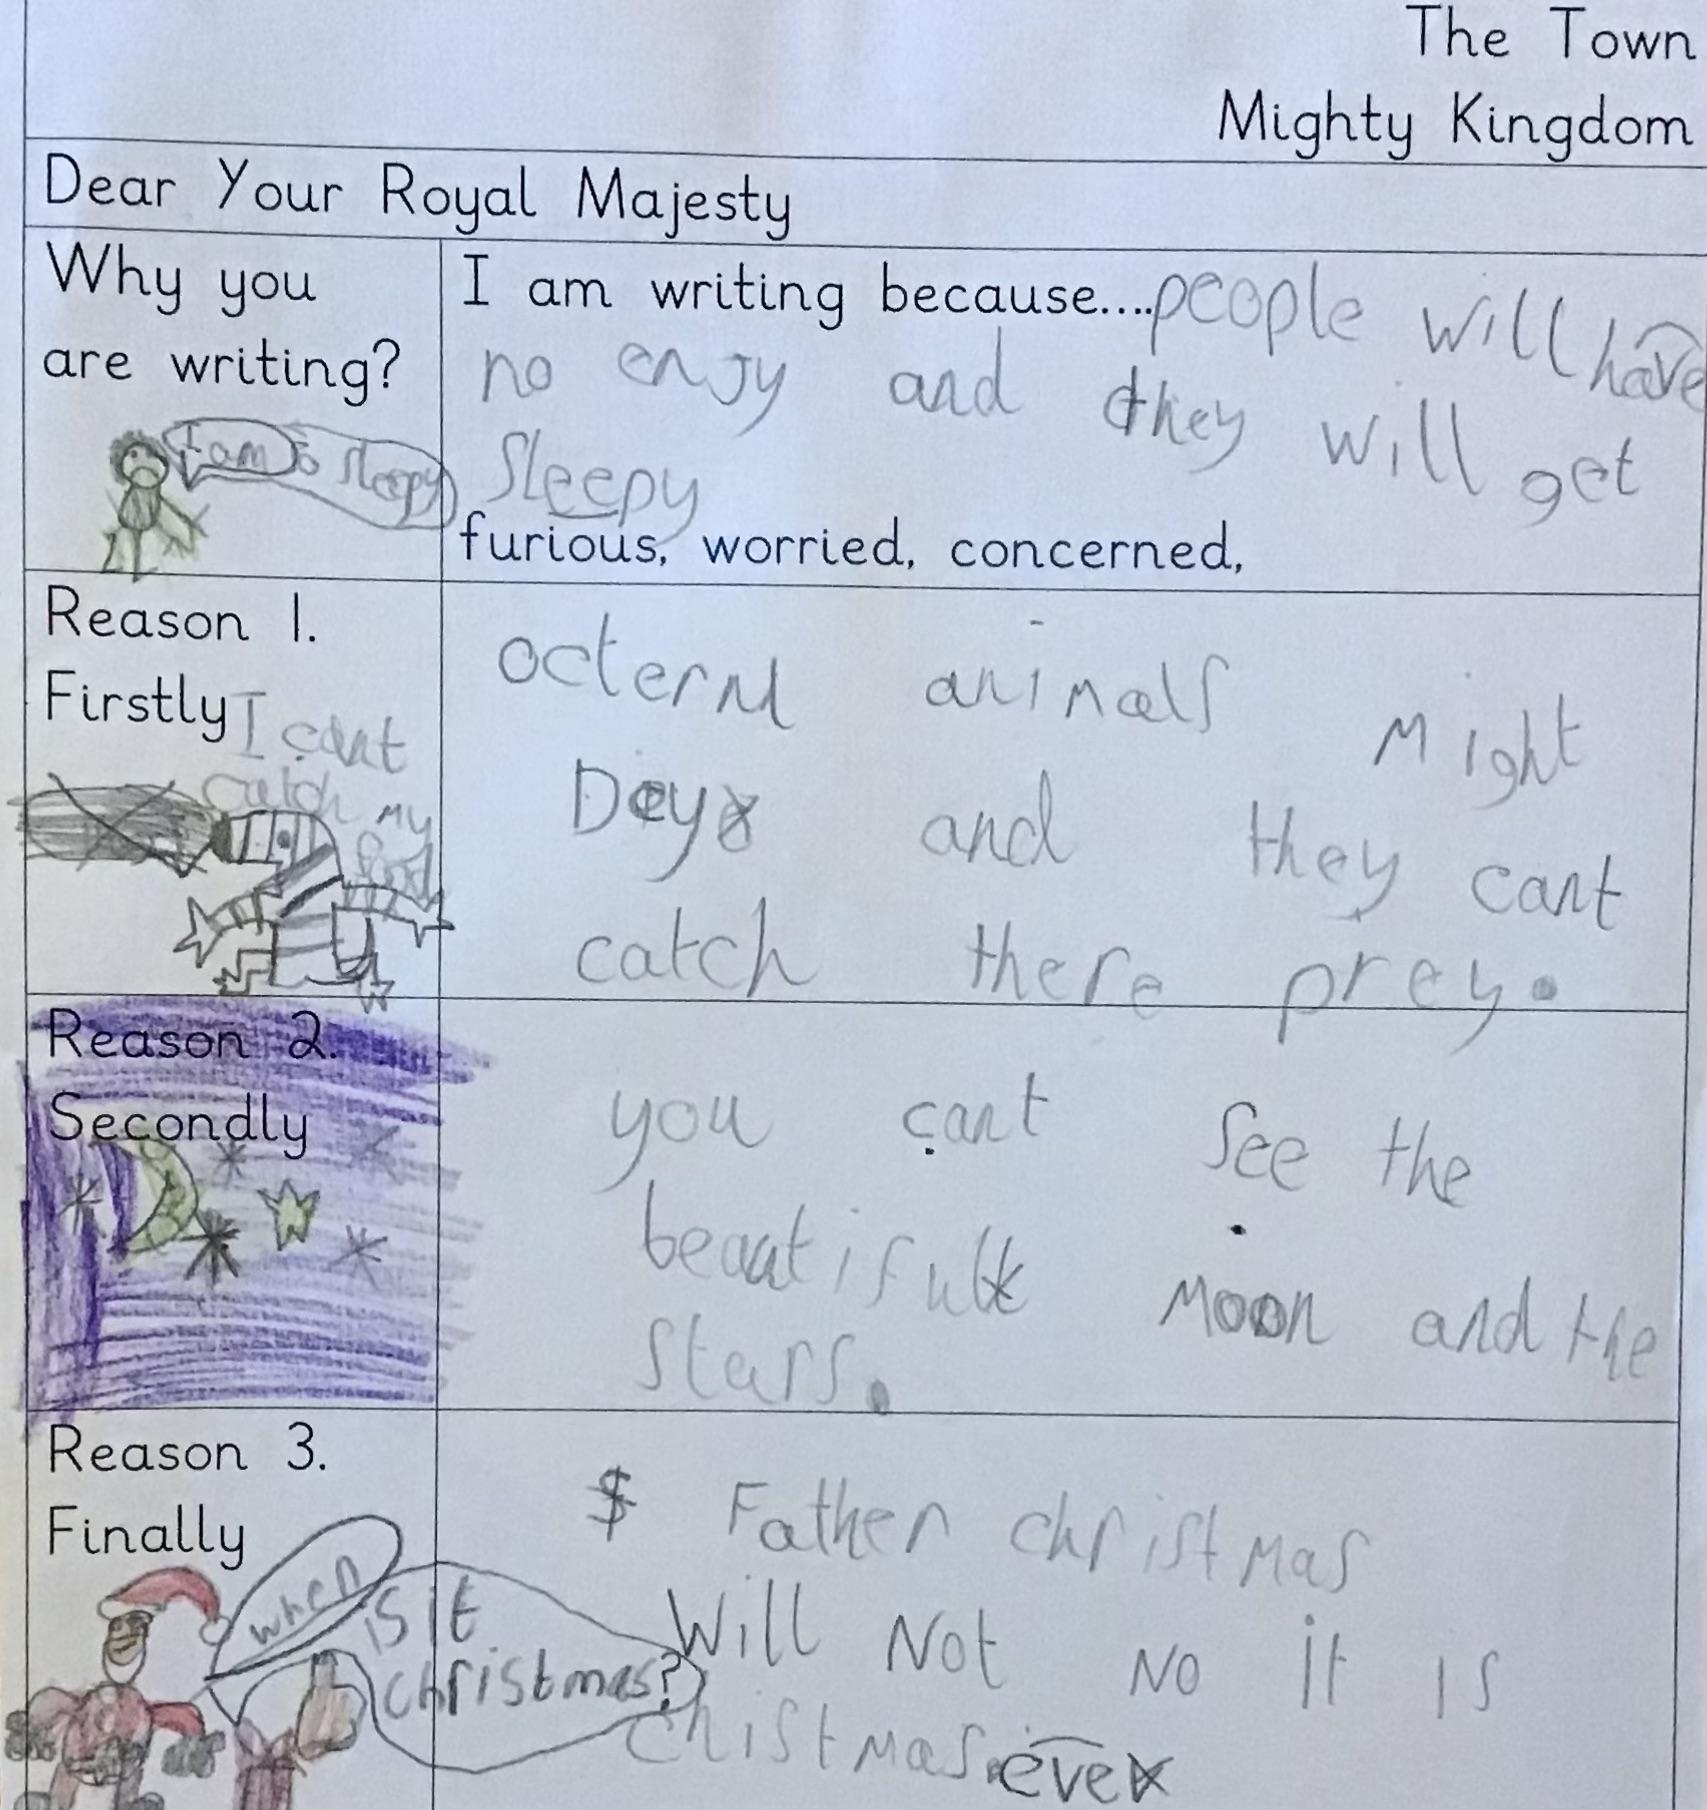 The Town
Mighty Kingdom
Dear Your Royal Majesty
Why you
are writing?
I am so sleepy
I am writing because....people will have
no enjy and they will get
sleepy
furious, worried, concerned,
Reason 1.
Firstly
I cant
catch my
food
octernl animals might
Dey and they cant
catch there prey.
Reason 2.
Secondly
you cant see the
beautiful moon and the
stars.
Reason 3.
Finally
when
is it
christmas?
Father christmas
Will Not No it is
christmas eve